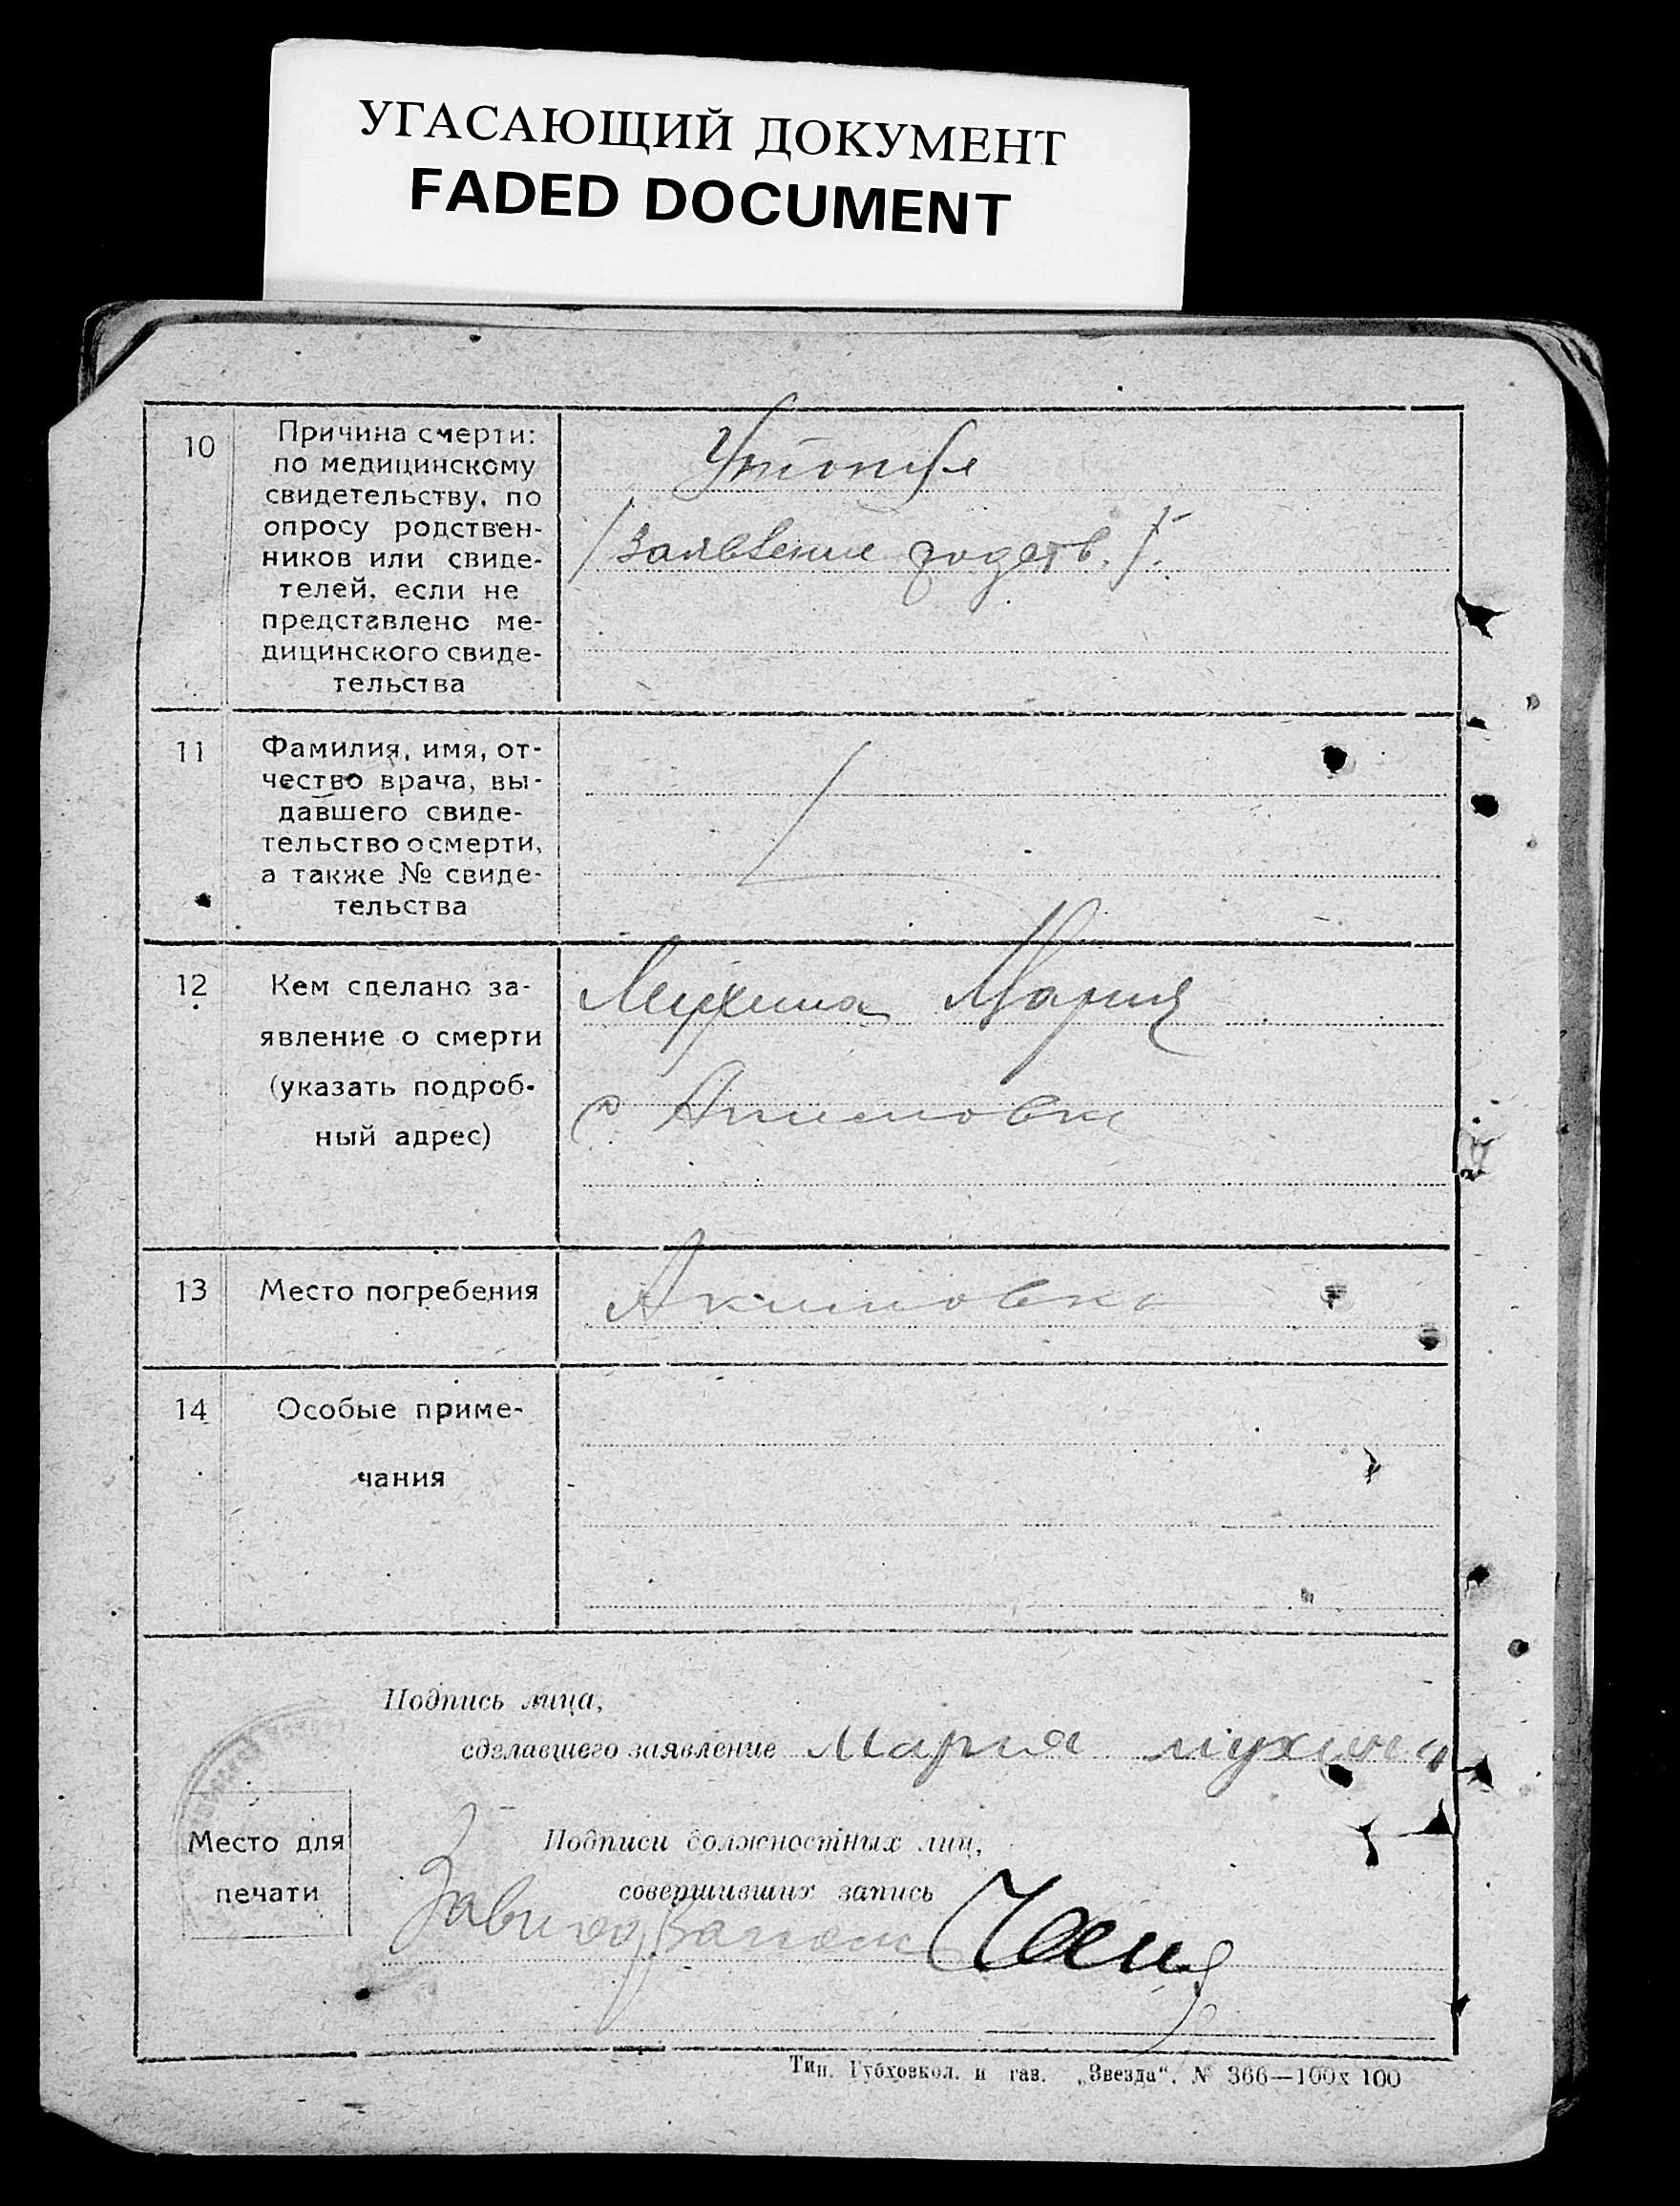 УГАСАЮЩИЙ ДОКУМЕНТ
FADED DOCUMENT
10
Причина смерти:
по медицинскому
свидетельству, по
опросу родствен-
ников или свиде-
телей, если не
представлено ме-
дицинского свиде-
тельства
/заявление родств./.
11
Фамилия, имя, от-
чество врача, вы-
давшего свиде-
тельство о смерти,
а также № свиде-
тельства
12
Кем сделано за-
явление о смерти
(указать подроб-
ный адрес)
Мухина Мария
с Акимовка
13
Место погребения
Акимовка
14
Особые приме-
чания
Подпись лица,
сделавшего заявление Мария мухина
Место для
печати
Подписи должностных лиц,
совершивших запись
Тип. Губховкол. и газ. „Звезда“. № 366—100х 100